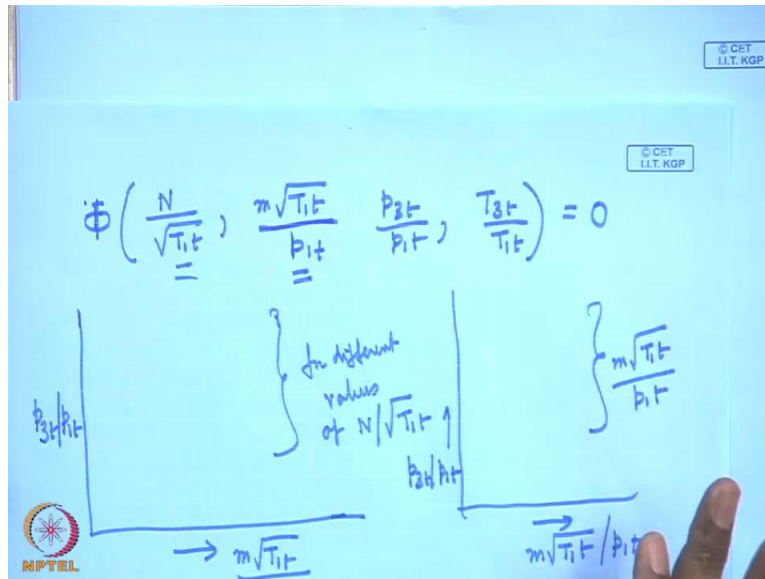 © CET
I.I.T. KGP
© CET
I.I.T. KGP
Φ ( N/√T₁t , m√T₁t/p₁t p₃t/p₁t , T₃t/T₁t ) = 0
p₃t/p₁t
for different
values
of N/√T₁t
m√T₁t/p₁t
p₃t/p₁t
→ m√T₁t
→ m√T₁t / p₁t
NPTEL